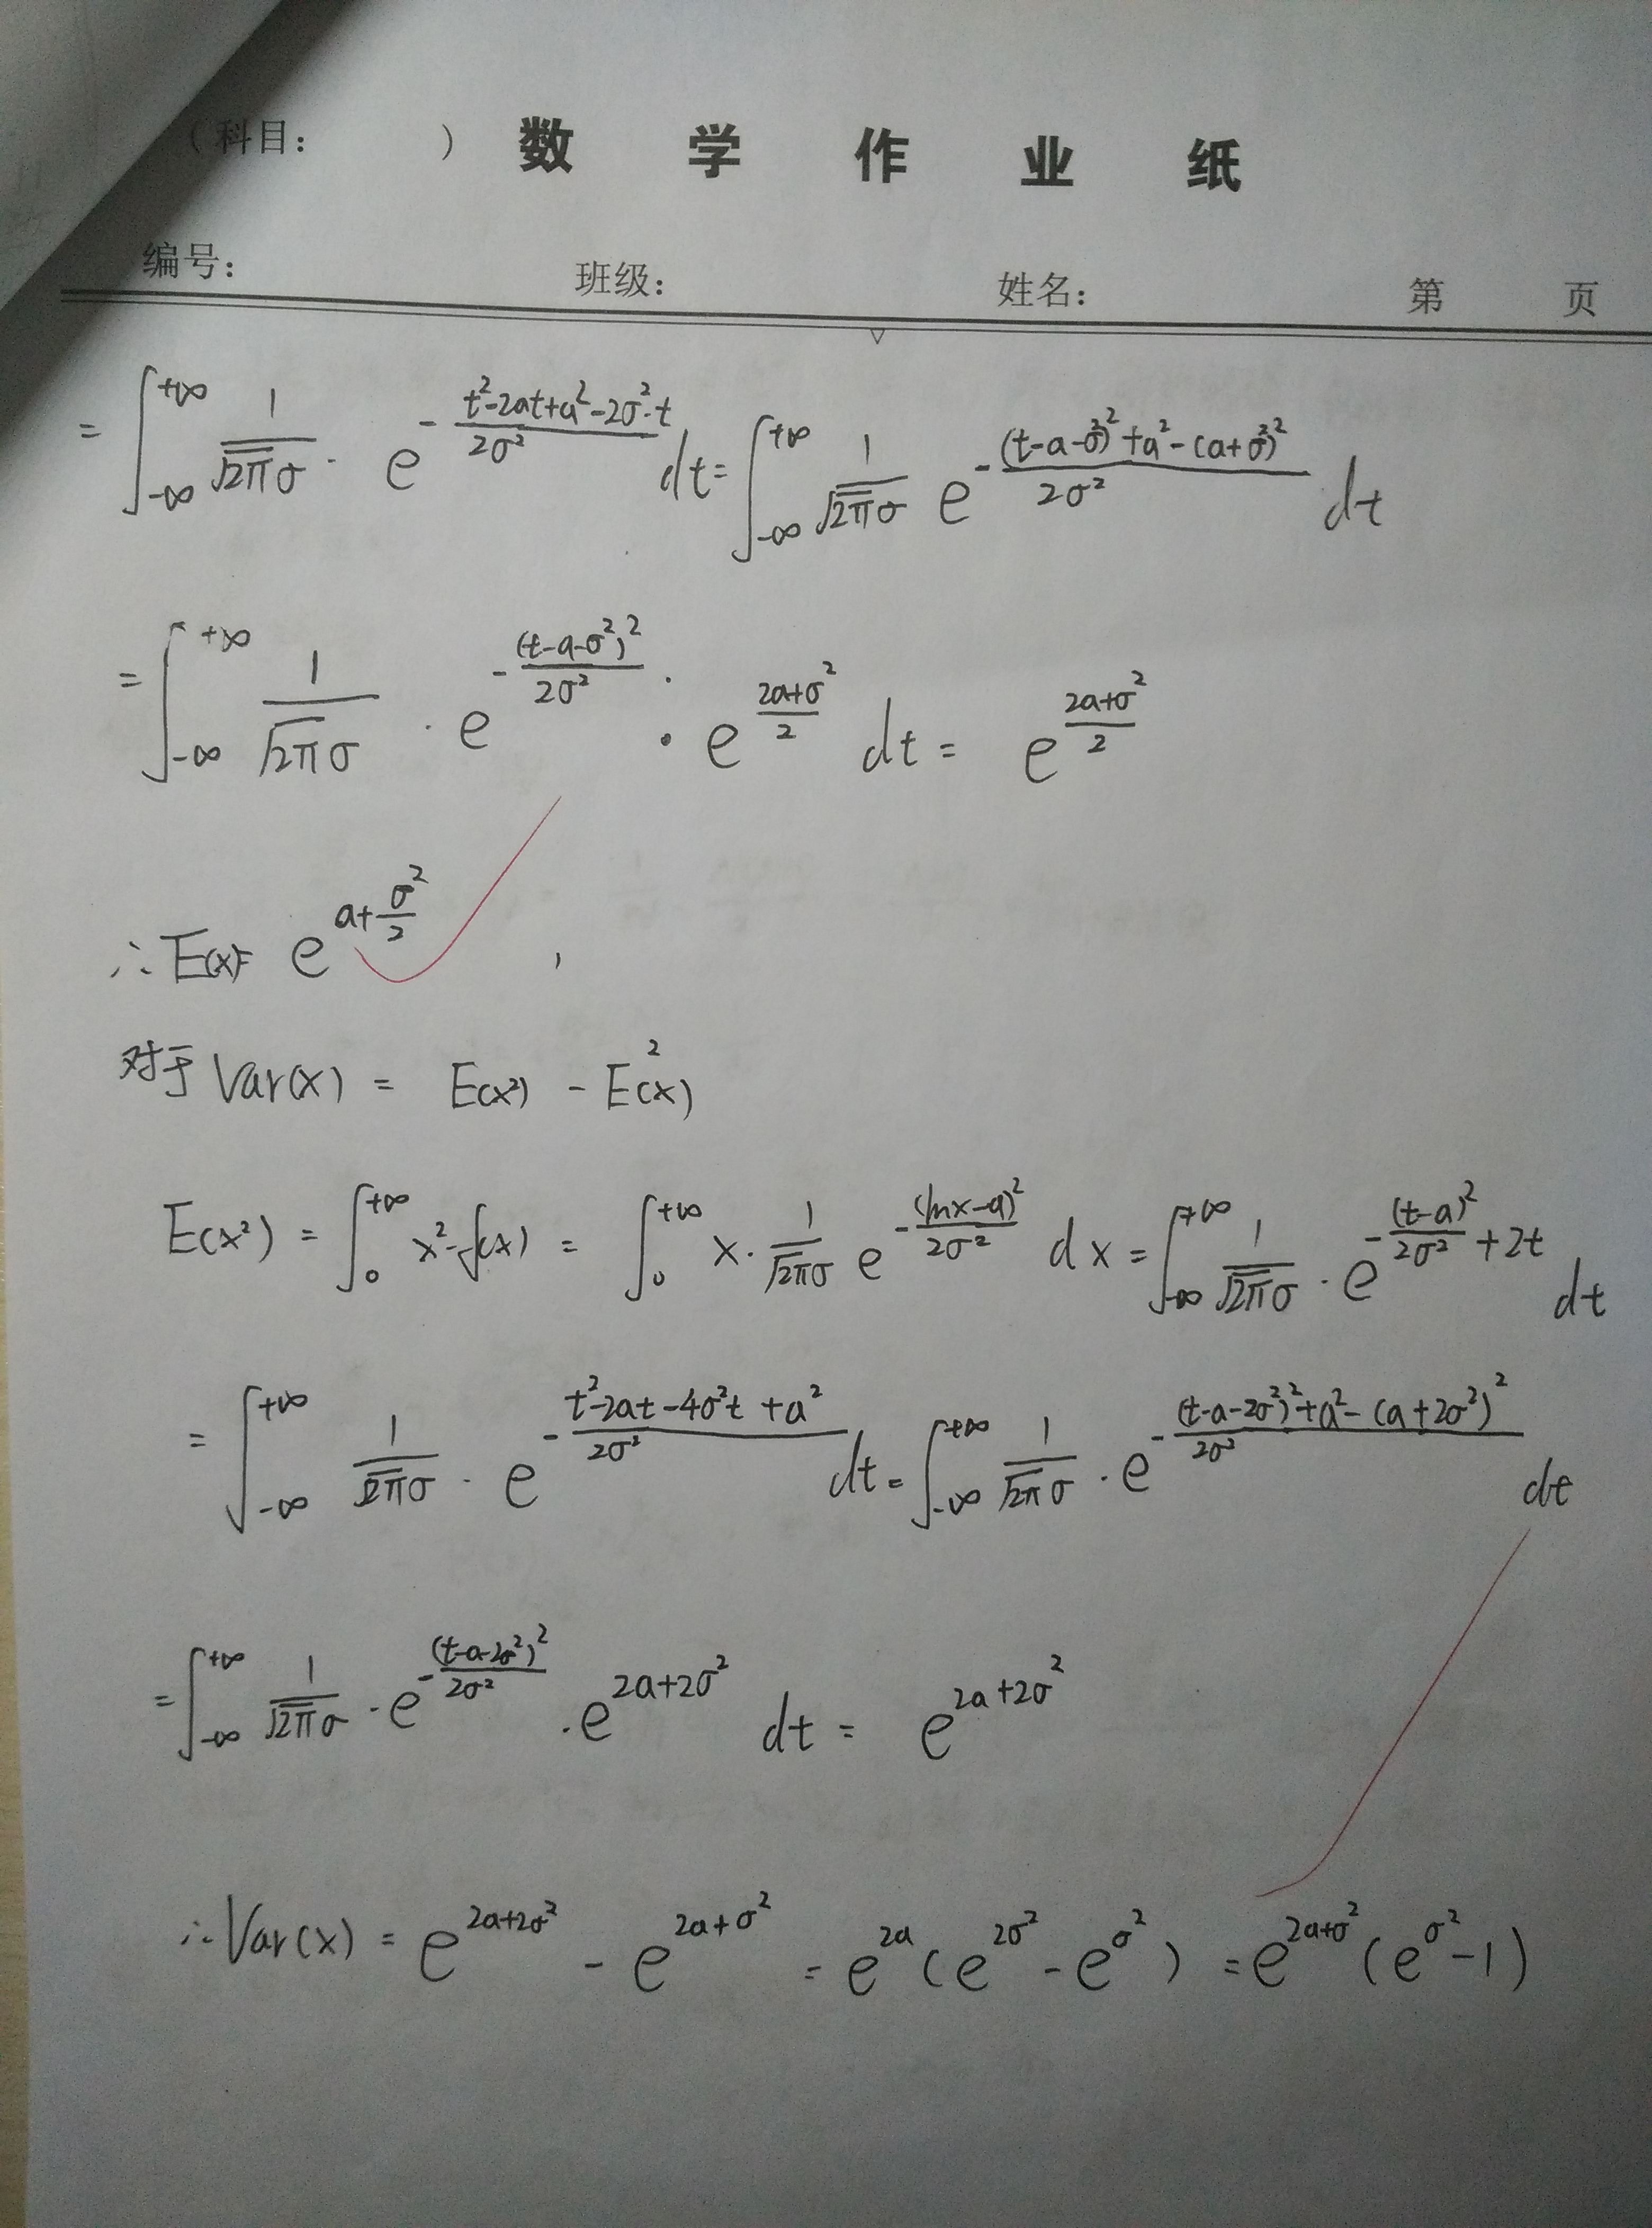 （科目：　　）数 学 作 业 纸
编号：　班级：　姓名：　第　页
= ∫_{-∞}^{+∞} \frac{1}{\sqrt{2π}σ} · e^{-\frac{t²-2at+a²-2σ²·t}{2σ²}} dt = ∫_{-∞}^{+∞} \frac{1}{\sqrt{2π}σ} e^{-\frac{(t-a-σ²)²+a²-(a+σ²)²}{2σ²}} dt
= ∫_{-∞}^{+∞} \frac{1}{\sqrt{2π}σ} · e^{-\frac{(t-a-σ²)²}{2σ²}} · e^{\frac{2a+σ²}{2}} dt = e^{\frac{2a+σ²}{2}}
∴ E(x)= e^{a+\frac{σ²}{2}} ,
对于 Var(x) = E(x²) - E²(x)
E(x²) = ∫_{0}^{+∞} x²·f(x) = ∫_{0}^{+∞} x· \frac{1}{\sqrt{2π}σ} e^{-\frac{(lnx-a)²}{2σ²}} dx = ∫_{-∞}^{+∞} \frac{1}{\sqrt{2π}σ} · e^{-\frac{(t-a)²}{2σ²}+2t} dt
= ∫_{-∞}^{+∞} \frac{1}{\sqrt{2π}σ} · e^{-\frac{t²-2at-4σ²t+a²}{2σ²}} dt = ∫_{-∞}^{+∞} \frac{1}{\sqrt{2π}σ} · e^{-\frac{(t-a-2σ²)²+a²-(a+2σ²)²}{2σ²}} dt
= ∫_{-∞}^{+∞} \frac{1}{\sqrt{2π}σ} · e^{-\frac{(t-a-2σ²)²}{2σ²}} · e^{2a+2σ²} dt = e^{2a+2σ²}
∴ Var(x) = e^{2a+2σ²} - e^{2a+σ²} = e^{2a}(e^{2σ²} - e^{σ²}) = e^{2a+σ²}(e^{σ²}-1)